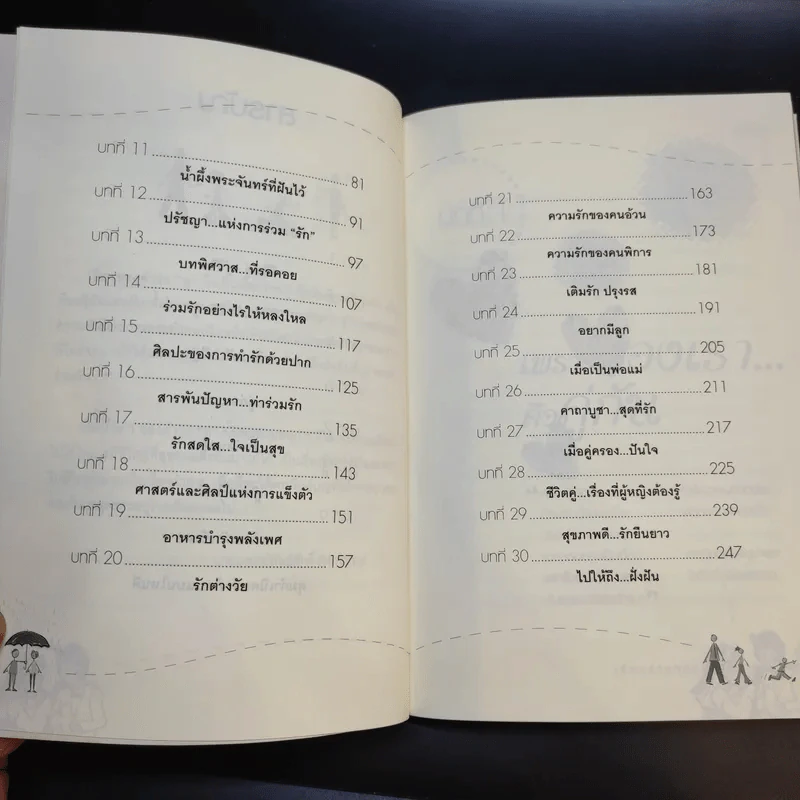 บทที่ 11 81
น้ำผึ้งพระจันทร์ที่ฝันไว้
บทที่ 12 91
ปรัชญา...แห่งการร่วม “รัก”
บทที่ 13 97
บทพิศวาส...ที่รอคอย
บทที่ 14 107
ร่วมรักอย่างไรให้หลงใหล
บทที่ 15 117
ศิลปะของการทำรักด้วยปาก
บทที่ 16 125
สารพันปัญหา...ท่าร่วมรัก
บทที่ 17 135
รักสดใส...ใจเป็นสุข
บทที่ 18 143
ศาสตร์และศิลป์แห่งการแข็งตัว
บทที่ 19 151
อาหารบำรุงพลังเพศ
บทที่ 20 157
รักต่างวัย
บทที่ 21 163
ความรักของคนอ้วน
บทที่ 22 173
ความรักของคนพิการ
บทที่ 23 181
เติมรัก ปรุงรส
บทที่ 24 191
อยากมีลูก
บทที่ 25 205
เมื่อเป็นพ่อแม่
บทที่ 26 211
คาถาบูชา...สุดที่รัก
บทที่ 27 217
เมื่อคู่ครอง...ปันใจ
บทที่ 28 225
ชีวิตคู่...เรื่องที่ผู้หญิงต้องรู้
บทที่ 29 239
สุขภาพดี...รักยืนยาว
บทที่ 30 247
ไปให้ถึง...ฝั่งฝัน